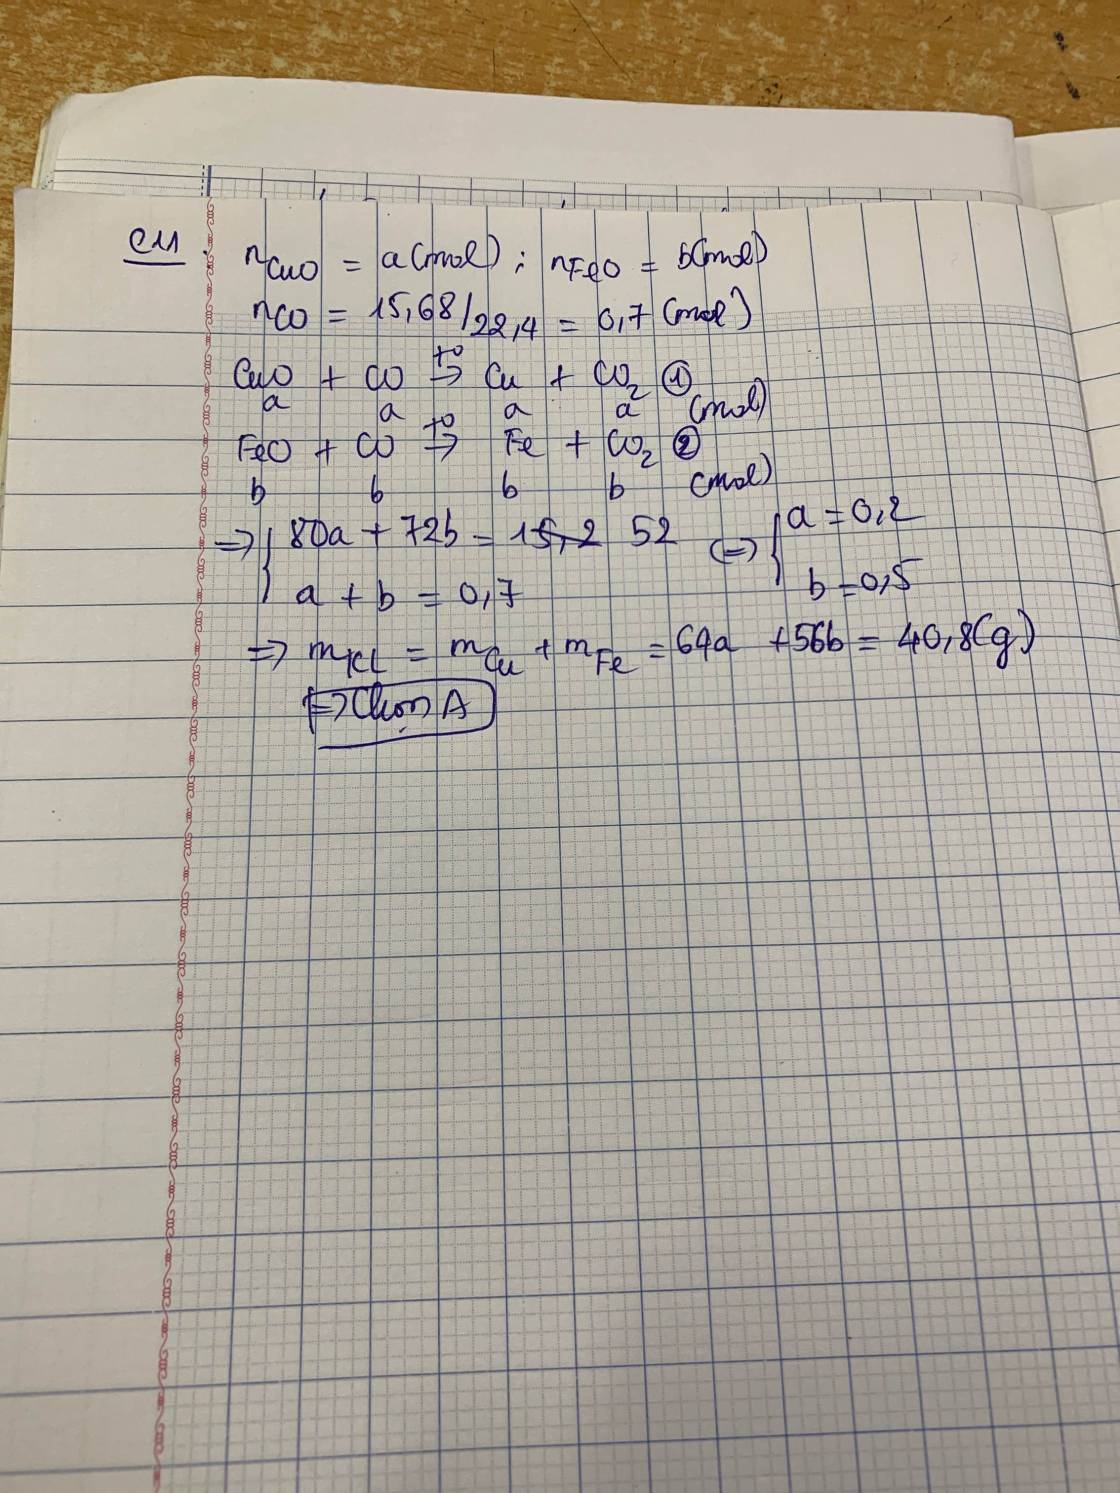 C11: nCuO = a(mol); nFeO = b(mol)
nCO = 15,68/22,4 = 0,7 (mol)
CuO + CO t°→ Cu + CO2 ①
a a a a (mol)
FeO + CO t°→ Fe + CO2 ②
b b b b (mol)
=> { 80a + 72b = 15,2 52 <=> { a = 0,2
a + b = 0,7 b = 0,5
=> mKL = mCu + mFe = 64a + 56b = 40,8(g)
=> Chọn A